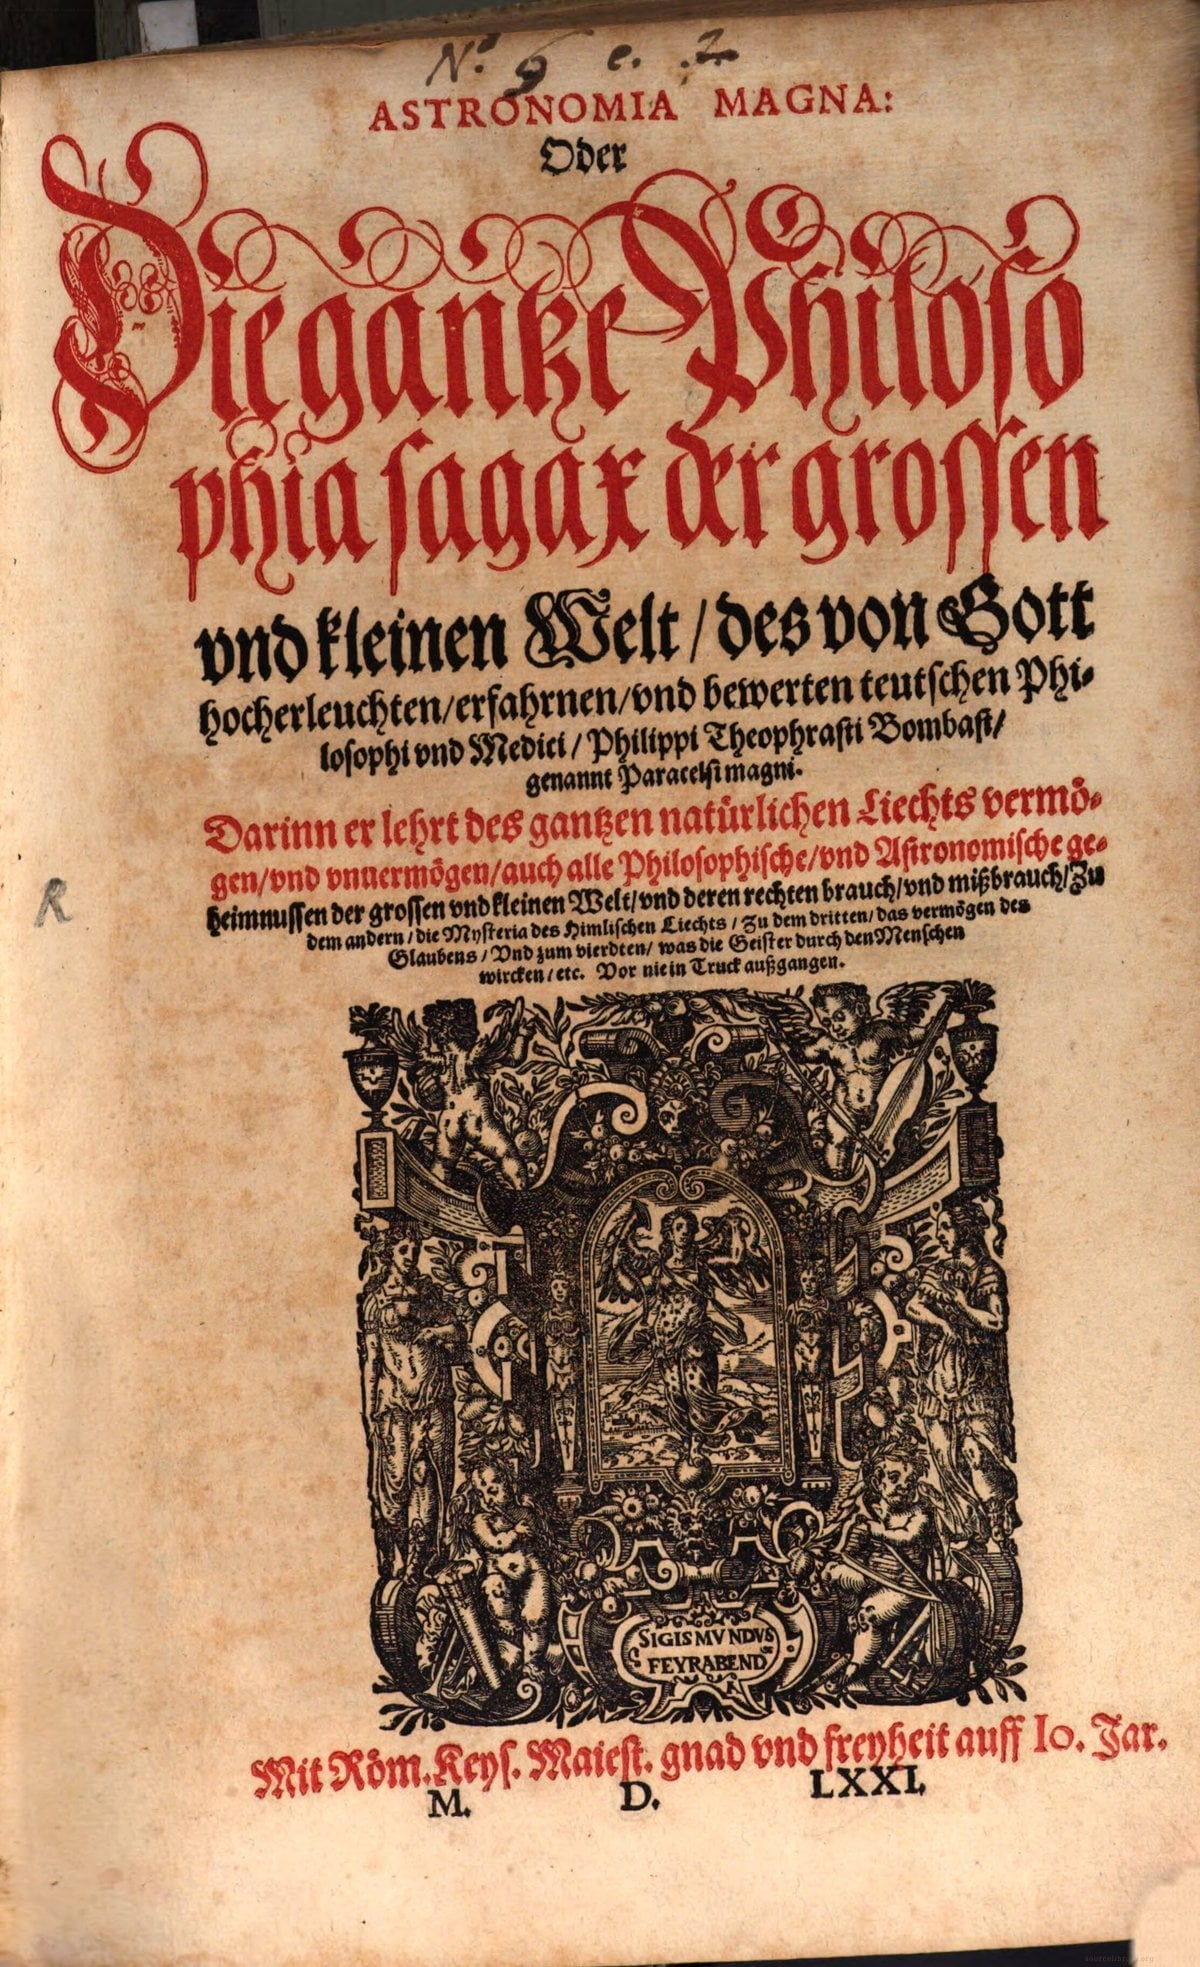 Nº 9 e. 2.
ASTRONOMIA MAGNA:
Oder
Die gantze Philoso
phia sagax der grossen
vnd kleinen Welt / des von Gott
hocherleuchten/erfahrnen/vnd bewerten teutschen Phi-
losophi vnd Medici / Philippi Theophrasti Bombast/
genannt Paracelsi magni.
Darinn er lehrt des gantzen natürlichen Liechts vermö-
gen/vnd vnuermögen/auch alle Philosophische/vnd Astronomische ge-
heimnussen der grossen vnd kleinen Welt/vnd deren rechten brauch/vnd mißbrauch/Zu
dem andern / die Mysteria des Himlischen Liechts / Zu dem dritten/das vermögen des
Glaubens / Vnd zum vierdten/ was die Geister durch den Menschen
wircken / etc. Vor nie in Truck außgangen.
R
SIGISMVNDVS
FEYRABEND
Mit Röm. Keys. Maiest. gnad vnd freyheit auff 10. Jar.
M. D. LXXI.
sourcelibrary.org